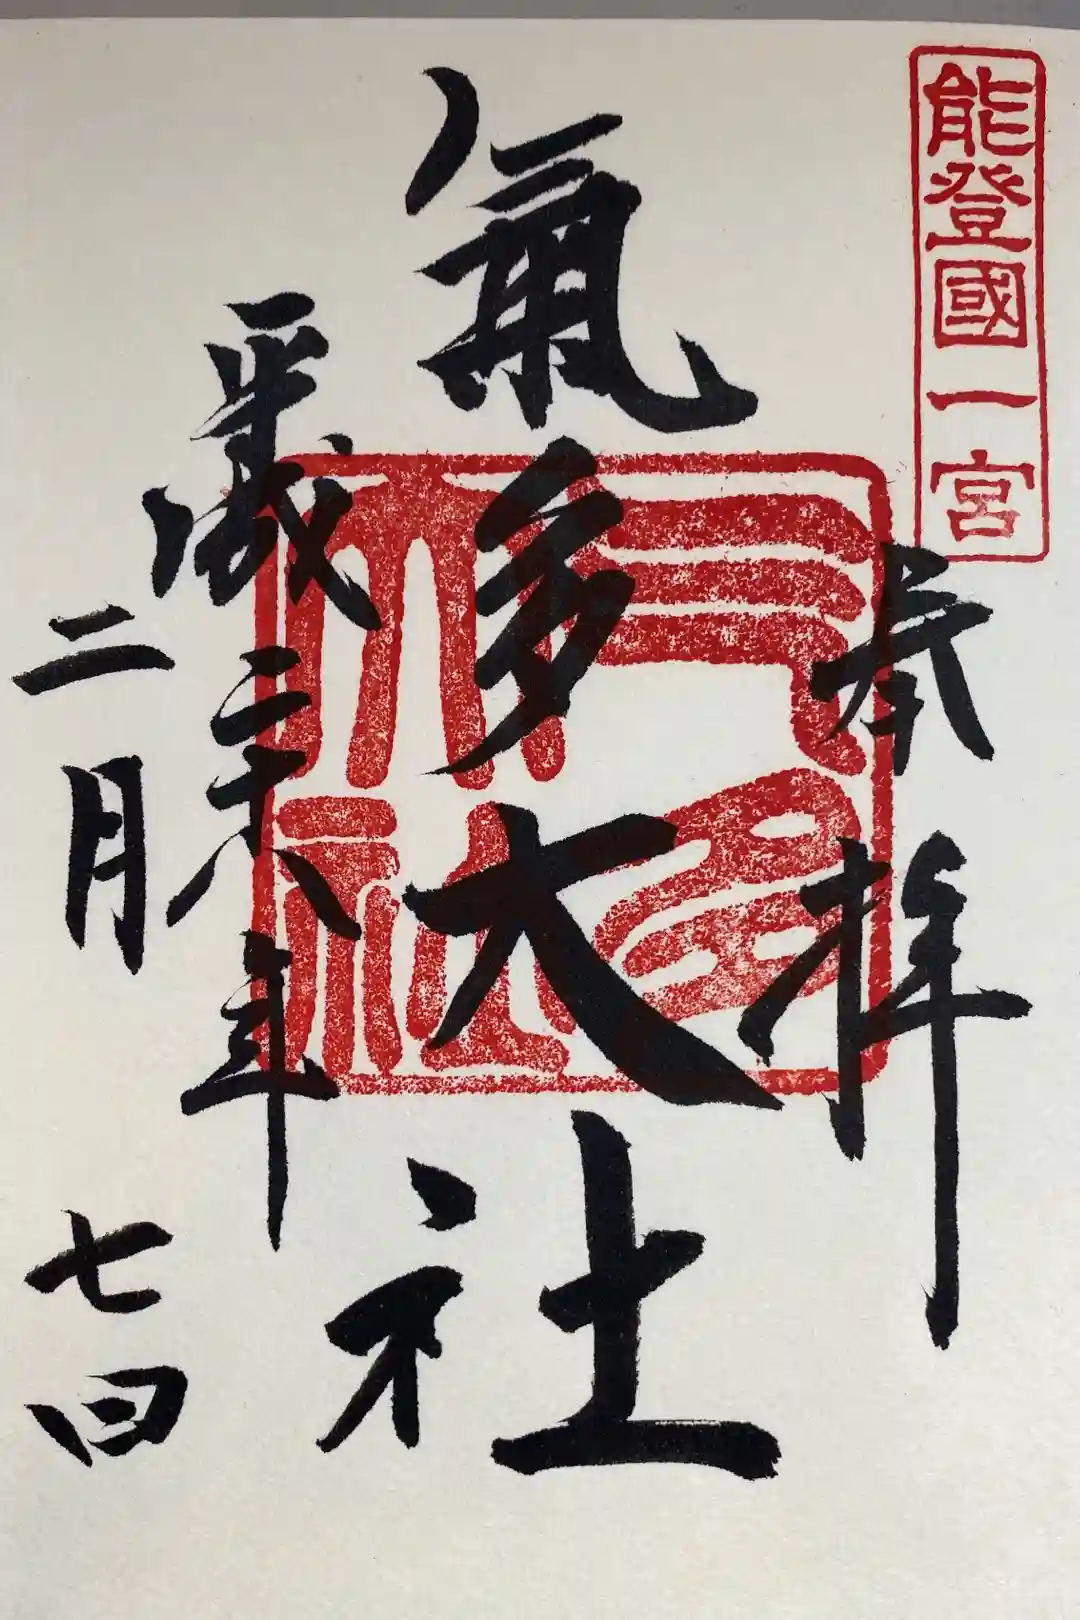 能登國一宮
奉拝
氣多大社
气多
大社
平成二十八年
二月七日